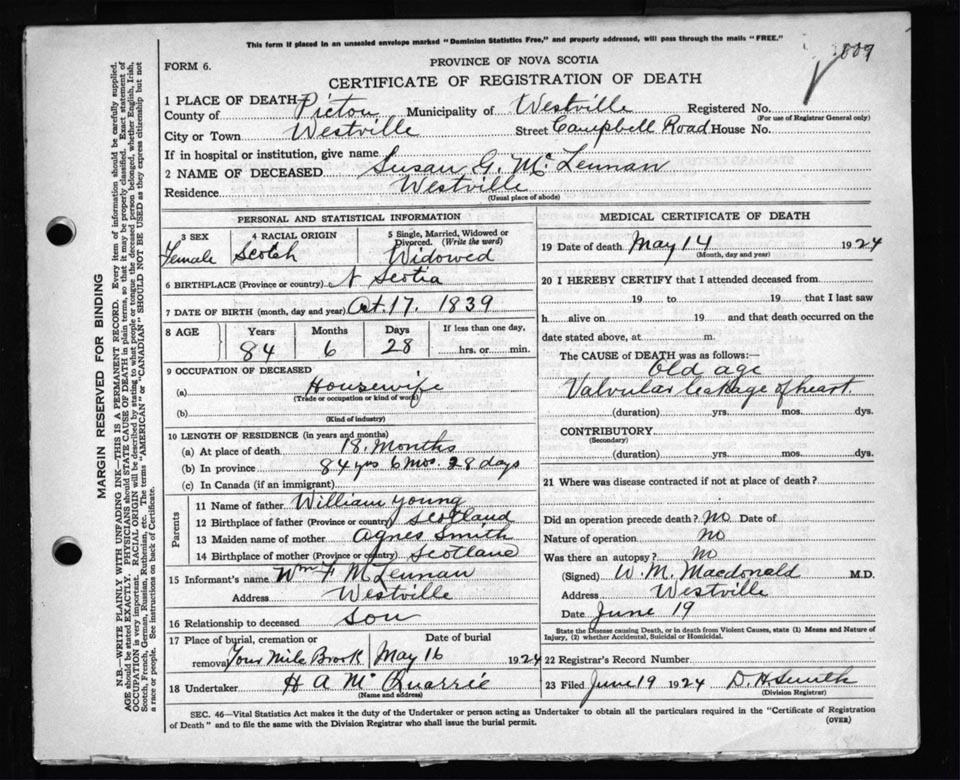 This form if placed in an unsealed envelope marked "Dominion Statistics Free," and property addressed, will pass through the mails "FREE."
FORM 6.
PROVINCE OF NOVA SCOTIA
CERTIFICATE OF REGISTRATION OF DEATH
1 PLACE OF DEATH
County of Pictou Municipality of Westville Registered No.
(For use of Registrar General only)
City or Town Westville Street Campbell Road House No.
If in hospital or institution, give name
2 NAME OF DECEASED Susan G. McLennan
Residence Westville
(Usual place of abode)
PERSONAL AND STATISTICAL INFORMATION
3 SEX Female
4 RACIAL ORIGIN Scotch
5 Single, Married, Widowed or Divorced. (Write the word) Widowed
6 BIRTHPLACE (Province or country) N Scotia
7 DATE OF BIRTH (month, day and year) Oct. 17. 1839
8 AGE Years 84 Months 6 Days 28 If less than one day, hrs. or min.
9 OCCUPATION OF DECEASED
(a) Housewife
(Trade or occupation or kind of work)
(b)
(Kind of industry)
10 LENGTH OF RESIDENCE (in years and months)
(a) At place of death 18 Months
(b) In province 84 yrs 6 mos. 28 days
(c) In Canada (if an immigrant)
Parents
11 Name of father William Young
12 Birthplace of father (Province or country) Scotland
13 Maiden name of mother Agnes Smith
14 Birthplace of mother (Province or country) Scotland
15 Informant's name Wm F McLennan
Address Westville
16 Relationship to deceased Son
17 Place of burial, cremation or removal Four Mile Brook
Date of burial May 16 1924
18 Undertaker H A McQuarrie
(Name and address)
MEDICAL CERTIFICATE OF DEATH
19 Date of death May 14 1924
(Month, day and year)
20 I HEREBY CERTIFY that I attended deceased from
19 to 19 that I last saw
h alive on 19 and that death occurred on the
date stated above, at m.
The CAUSE OF DEATH was as follows:—
Old age
Valvular leakage of heart
(duration) yrs. mos. dys.
CONTRIBUTORY
(Secondary)
(duration) yrs. mos. dys.
21 Where was disease contracted if not at place of death?
Did an operation precede death? No Date of
Nature of operation No
Was there an autopsy? No
(Signed) W. M. Macdonald M.D.
Address Westville
Date June 19
State the Disease causing Death, or in death from Violent Causes, state (1) Means and Nature of
Injury, (2) whether Accidental, Suicidal or Homicidal.
22 Registrar's Record Number
23 Filed June 19 1924 D. H. Smith
(Division Registrar)
SEC. 46—Vital Statistics Act makes it the duty of the Undertaker or person acting as Undertaker to obtain all the particulars required in the "Certificate of Registration
of Death" and to file the same with the Division Registrar who shall issue the burial permit.
(OVER)
MARGIN RESERVED FOR BINDING
N.B.—WRITE PLAINLY WITH UNFADING INK—THIS IS A PERMANENT RECORD. Every item of information should be carefully supplied.
AGE should be stated EXACTLY. PHYSICIANS should STATE CAUSE OF DEATH in plain terms, so that it may be properly classified. Exact statement of
OCCUPATION is very important. RACIAL ORIGIN will be described by stating to what people or tongue the deceased person belonged, whether English, Irish,
Scotch, French, German, Russian, Ruthenian, etc. The terms "AMERICAN" or "CANADIAN" SHOULD NOT BE USED as they express citizenship but not
a race or people. See instructions on back of Certificate.